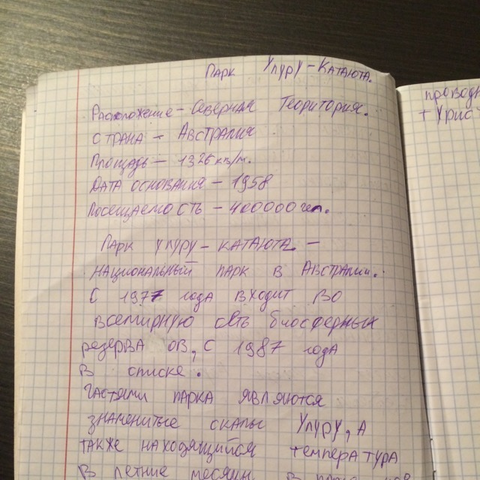 Парк Улуру-Катаюта.
Расположение - Северная Теоритория.
страна - Австралия
Площадь - 1326 км/м.
Дата основания - 1958
Посещаемость - 400000 чел.
Парк улуру-катаюта -
национальный парк в Австралии.
С 1977 года входит во
всемирную сеть биосферных
резерва ов, с 1987 года
в списке.
Частями парка являются
знаменитые скалы Улуру, а
также находящийся температура
В летние месяцы в
проводн
+ Урис